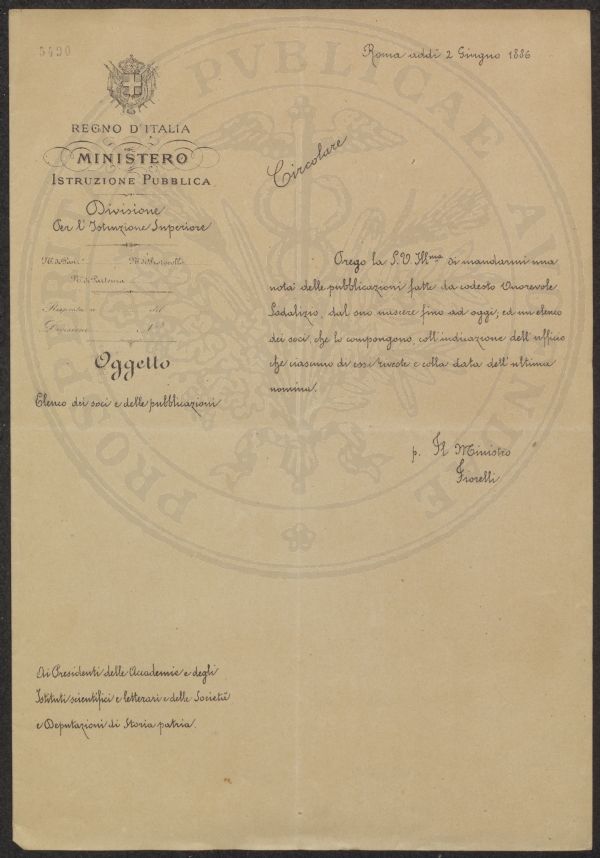 5490
Roma addì 2 Giugno 1886
REGNO D'ITALIA
MINISTERO
DELL'
ISTRUZIONE PUBBLICA
Divisione
Per l'Istruzione Superiore
N. di Posiz.e N. di Protocollo
N. di Partenza
Risposta a del
Divisione N.
Oggetto
Elenco dei soci e delle pubblicazioni
Circolare
Prego la S.V. Ill.ma di mandarmi una
nota delle pubblicazioni fatte da codesto Onorevole
Sodalizio, dal suo nascere fino ad oggi, ed un elenco
dei soci, che lo compongono, coll'indicazione dell'ufficio
che ciascuno di essi riveste e colla data dell'ultima
nomina.
p. Il Ministro
Fiorelli
Ai Presidenti delle Accademie e degli
Istituti scientifici e letterari e delle Società
e Deputazioni di Storia patria.
PUBLICAE